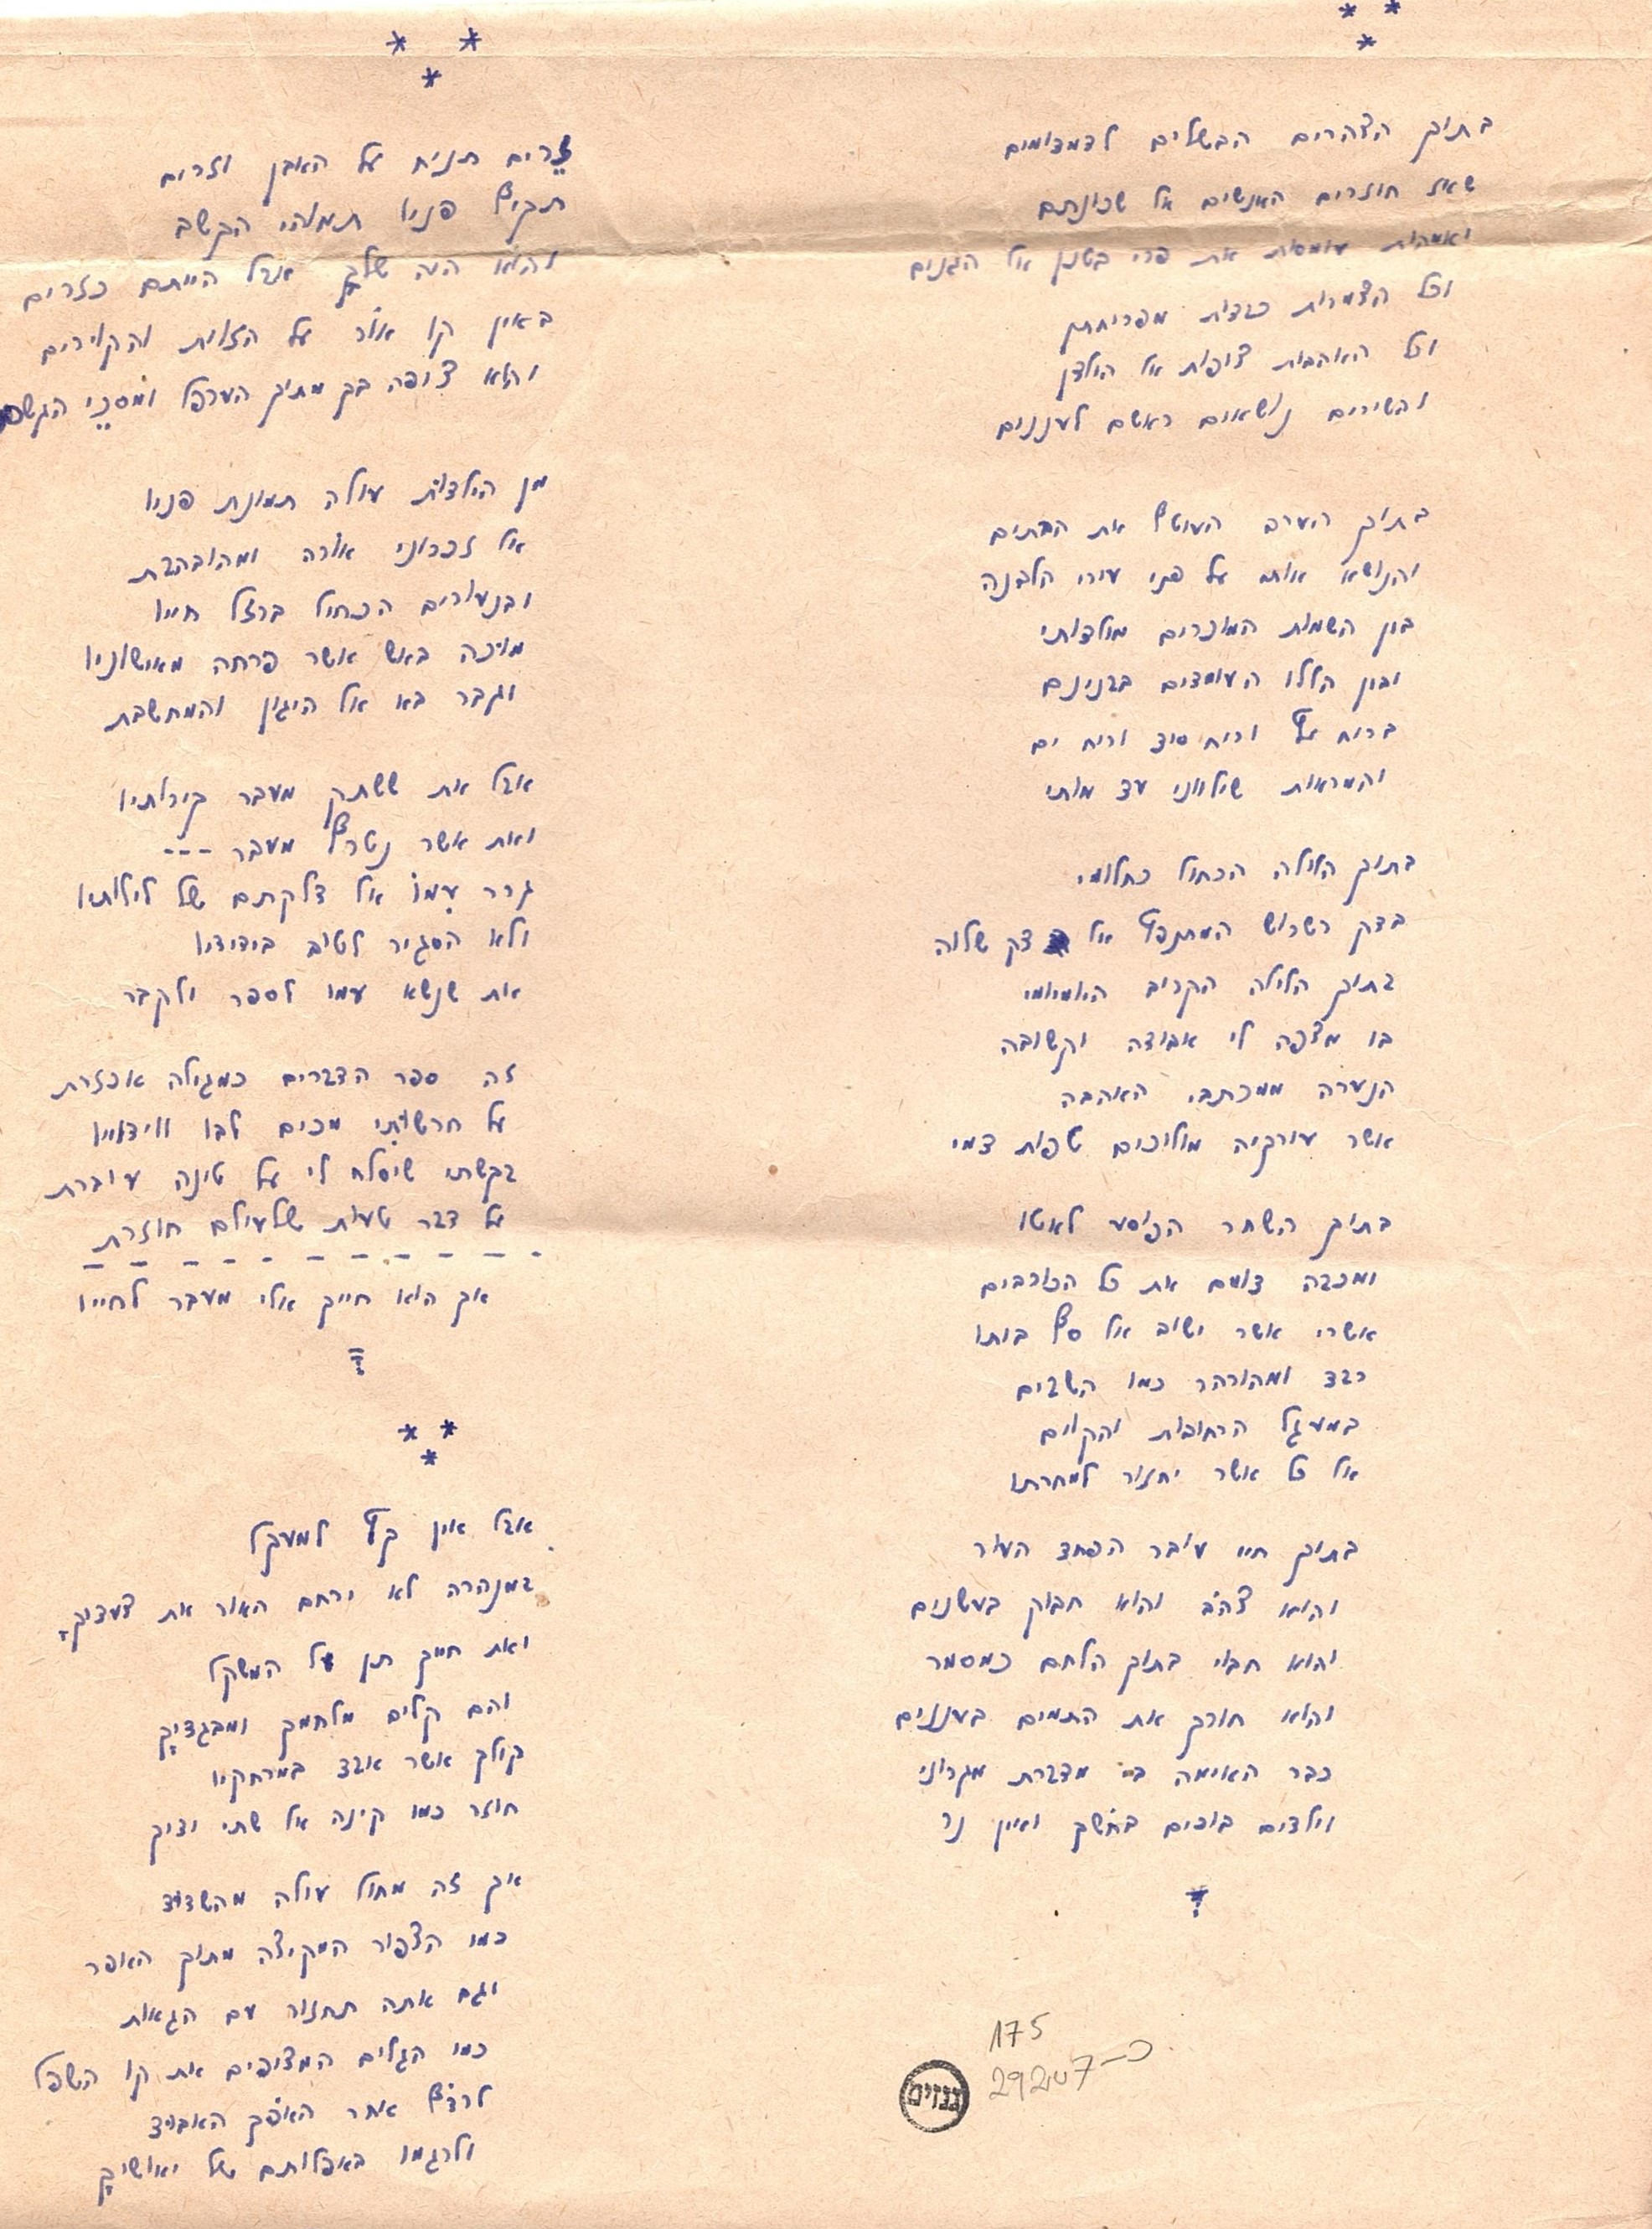 * *
*
בתוך הצהרים הבשלים לדמדומים
שאז חוזרים האנשים אל שכונתם
ואמהות עומסות את פרי בטנן אל הגנים
וכל הצמרות כבדות מפריחתן
וכל האוהבות צופות אל הילדן
והשירים נושאים ראשם לעננים
בתוך הערב העוטף את הבתים
והנושא אותם על פני עורי הלבנה
בין השמות המוכרים מולדותי
ובין הללו העומדים בבנינם
בריח אלף וריח סיד וריח ים
והמראות שילווני עד מותי
בתוך הלילה הכחול כחלומי
בדק רשרוש המתנפץ אל דק שלוה
בתוך הלילה הקריב היומיומי
בו מצפה לי אבודה וקשובה
הנערה ממכתבי האהבה
אשר עורקיה מוליכים טפות דמי
בתוך השחר הפוסע לאטו
ומכבה דומם את כל הכורבים
אשרי אשר ישוב אל סף ביתו
כבד ומהורהר כמו השבים
במעגל הרחובות והקוים
אל כל אשר יחזור למחרתו
בתוך חיי עובר הפחד העור
והוא צהב והוא חבוק בעשנים
והוא חבוי בתוך הלחם כמסמר
והוא חורך את התמים בעננים
כבר האימה בי מדברת מגרוני
וילדים בוכים בחשך ואין נר
175
29207-כ
גנזים
* *
*
זרים תניח על האבן וזרים
תקיף פניו תמוהי הקשב
והוא היה שלך אבל הייתם כזרים
באין קו אור על הזוית והקוירים
והוא צופה בך מתוך הערפל ומסכי הגשם
מן הילדות עולה תמונת פניו
אל זכרוני אורה ומהובהבת
ובנעורים הכחיל ברזל חייו
מויכה באש אשר פרחה מאישוניו
וגבר בא אל היגון והמחשבת
אבל את ששתק מעבר קירותיו
ואת אשר נטרף מעבר ---
גרר עמו אל דלקתם של לילותיו
ולא הסגיר לטוב בידידיו
את שנשא עמו לספר ולקבר
זה ספר הדברים כמגילה אכזרת
על חרשותי מכים לבו ווידוייו
בקשתי שיסלח לי על טינה עוברת
על דבר טעות שלעולם חוזרת
אך הוא חייך אלי מעבר לחייו
* *
*
אבל אין קץ למעקל
במנהרה לא ירחם האור את צעדיך
ואת חייך תן על המשקל
והם קלים מלחמך ומבגדיך
קולך אשר אבד במרחקיו
חוזר כמו קינה אל שתי ידיך
אך זה מחול עולה מהשדוד
כמו הצפור המקיצה מתוך האפר
וגם אתה תחזור עם הגאות
כמו הגלים המצופים את קו השפל
לרדף אחר האפק האבוד
ולרגמו באפלותם של יאושיך